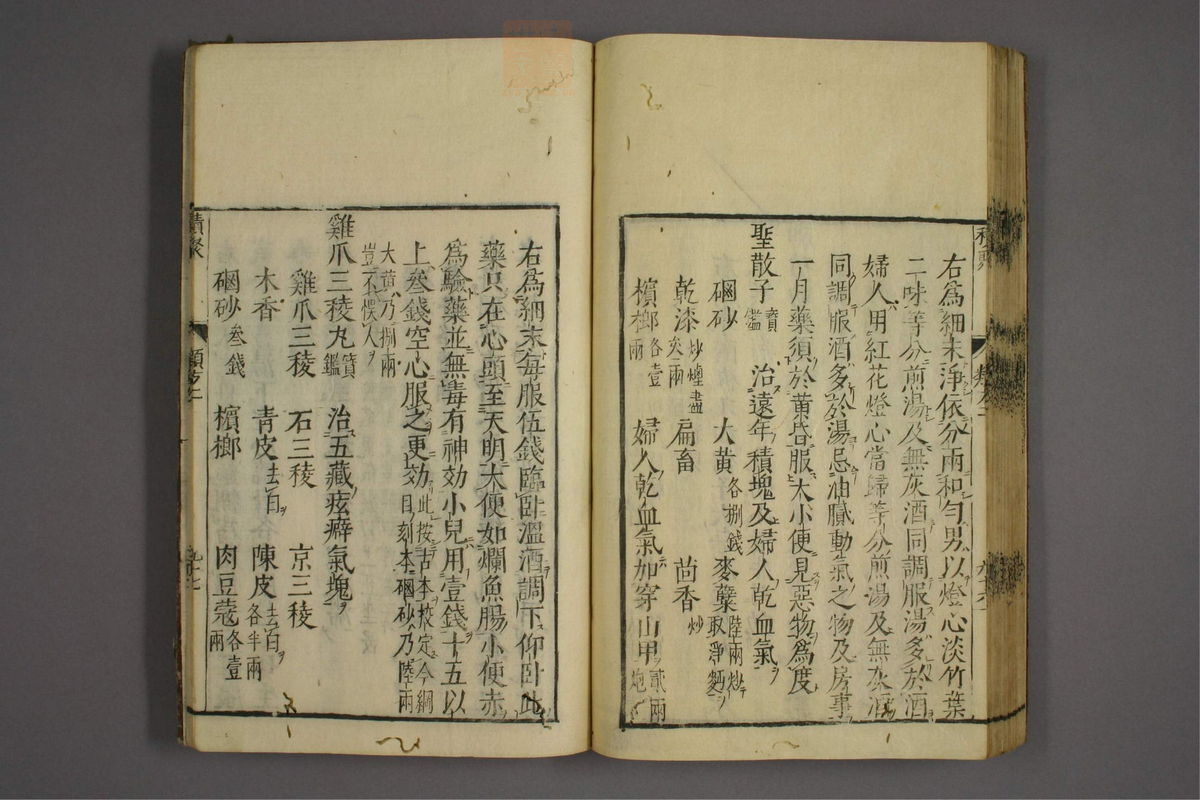 右爲細末淨依分兩和勻男以燈心淡竹葉
二味等分煎湯及無灰酒同調服湯多於酒
婦人用紅花燈心當歸等分煎湯及無灰酒
同調服酒多於湯忌油膩動氣之物及房事
一月藥須於黄昏服大小便見惡物爲度
聖散子寶鑑 治遠年積塊及婦人乾血氣
硇砂 大黄各捌錢 麥蘖陸兩炒取淨麪
乾漆炒煙盡叁兩 扁畜 茴香炒
檳榔各壹兩 婦人乾血氣加穿山甲貳兩炮
右爲細末每服伍錢臨卧溫酒調下仰卧此
藥只在心頭至天明大便如爛魚腸小便赤
爲驗藥並無毒有神効小兒用壹錢十五以
上叁錢空心服之更効此按古本校定今綱目刻本硇砂乃陸兩
大黄乃捌兩豈不悞人
雞爪三稜丸寶鑑 治五藏痃癖氣塊
雞爪三稜 石三稜 京三稜
木香 青皮去白 陳皮去白各半兩
硇砂叁錢 檳榔 肉豆蔻各壹兩
積聚
類方二